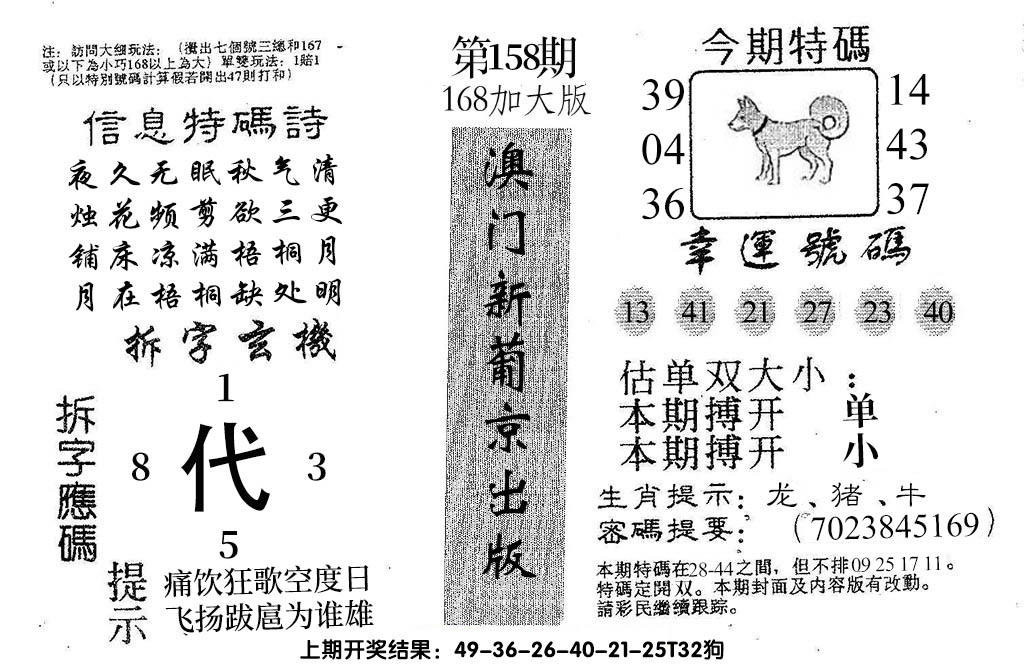 注：訪問大細玩法：（攪出七個號三總和167
或以下為小巧168以上為大）單雙玩法：1賠1
（只以特別號碼計算假若開出47則打和）
信息特碼詩
夜久无眠秋气清
烛花频剪欲三更
铺床凉满梧桐月
月在梧桐缺处明
拆字玄機
拆字應碼
1
8 代 3
5
提示
痛饮狂歌空度日
飞扬跋扈为谁雄
第158期
168加大版
澳门新葡京出版
今期特碼
39 14
04 43
36 37
幸運號碼
13 41 21 27 23 40
估单双大小：
本期搏开 单
本期搏开 小
生肖提示：龙、猪、牛
密碼提要：（7023845169）
本期特碼在28-44之間，但不排09 25 17 11。
特碼定開双。本期封面及内容版有改動。
請彩民繼續跟踪。
上期开奖结果：49-36-26-40-21-25T32狗